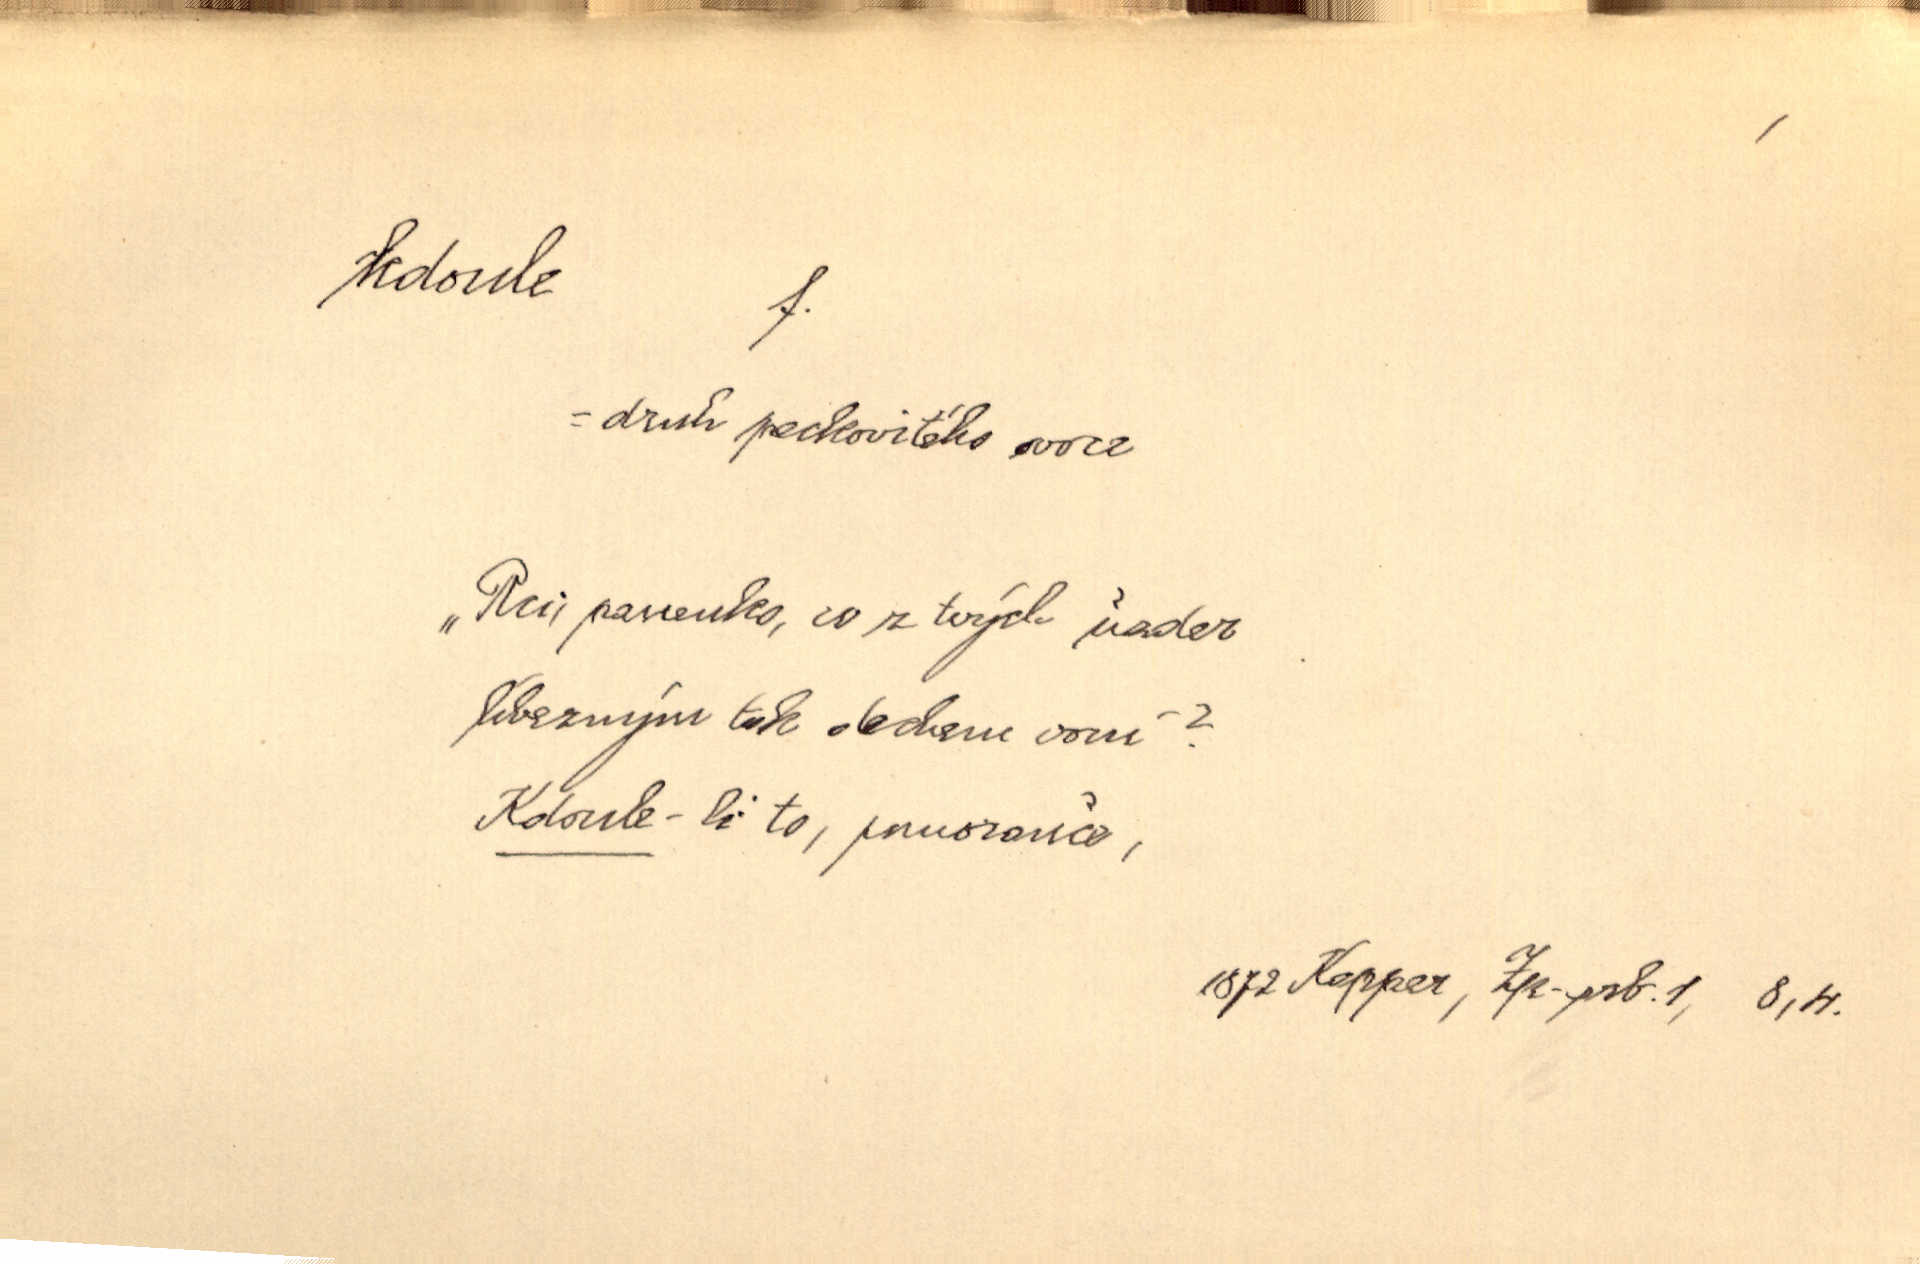 kdoule f.
= druh peckovitého ovoce
„Rci, panenko, co z tvých ňader
líbezným tak dechem voní?
Kdoule-li to, pomoranče,
1872 Kapper, Zp. srb. 1, 8, H.